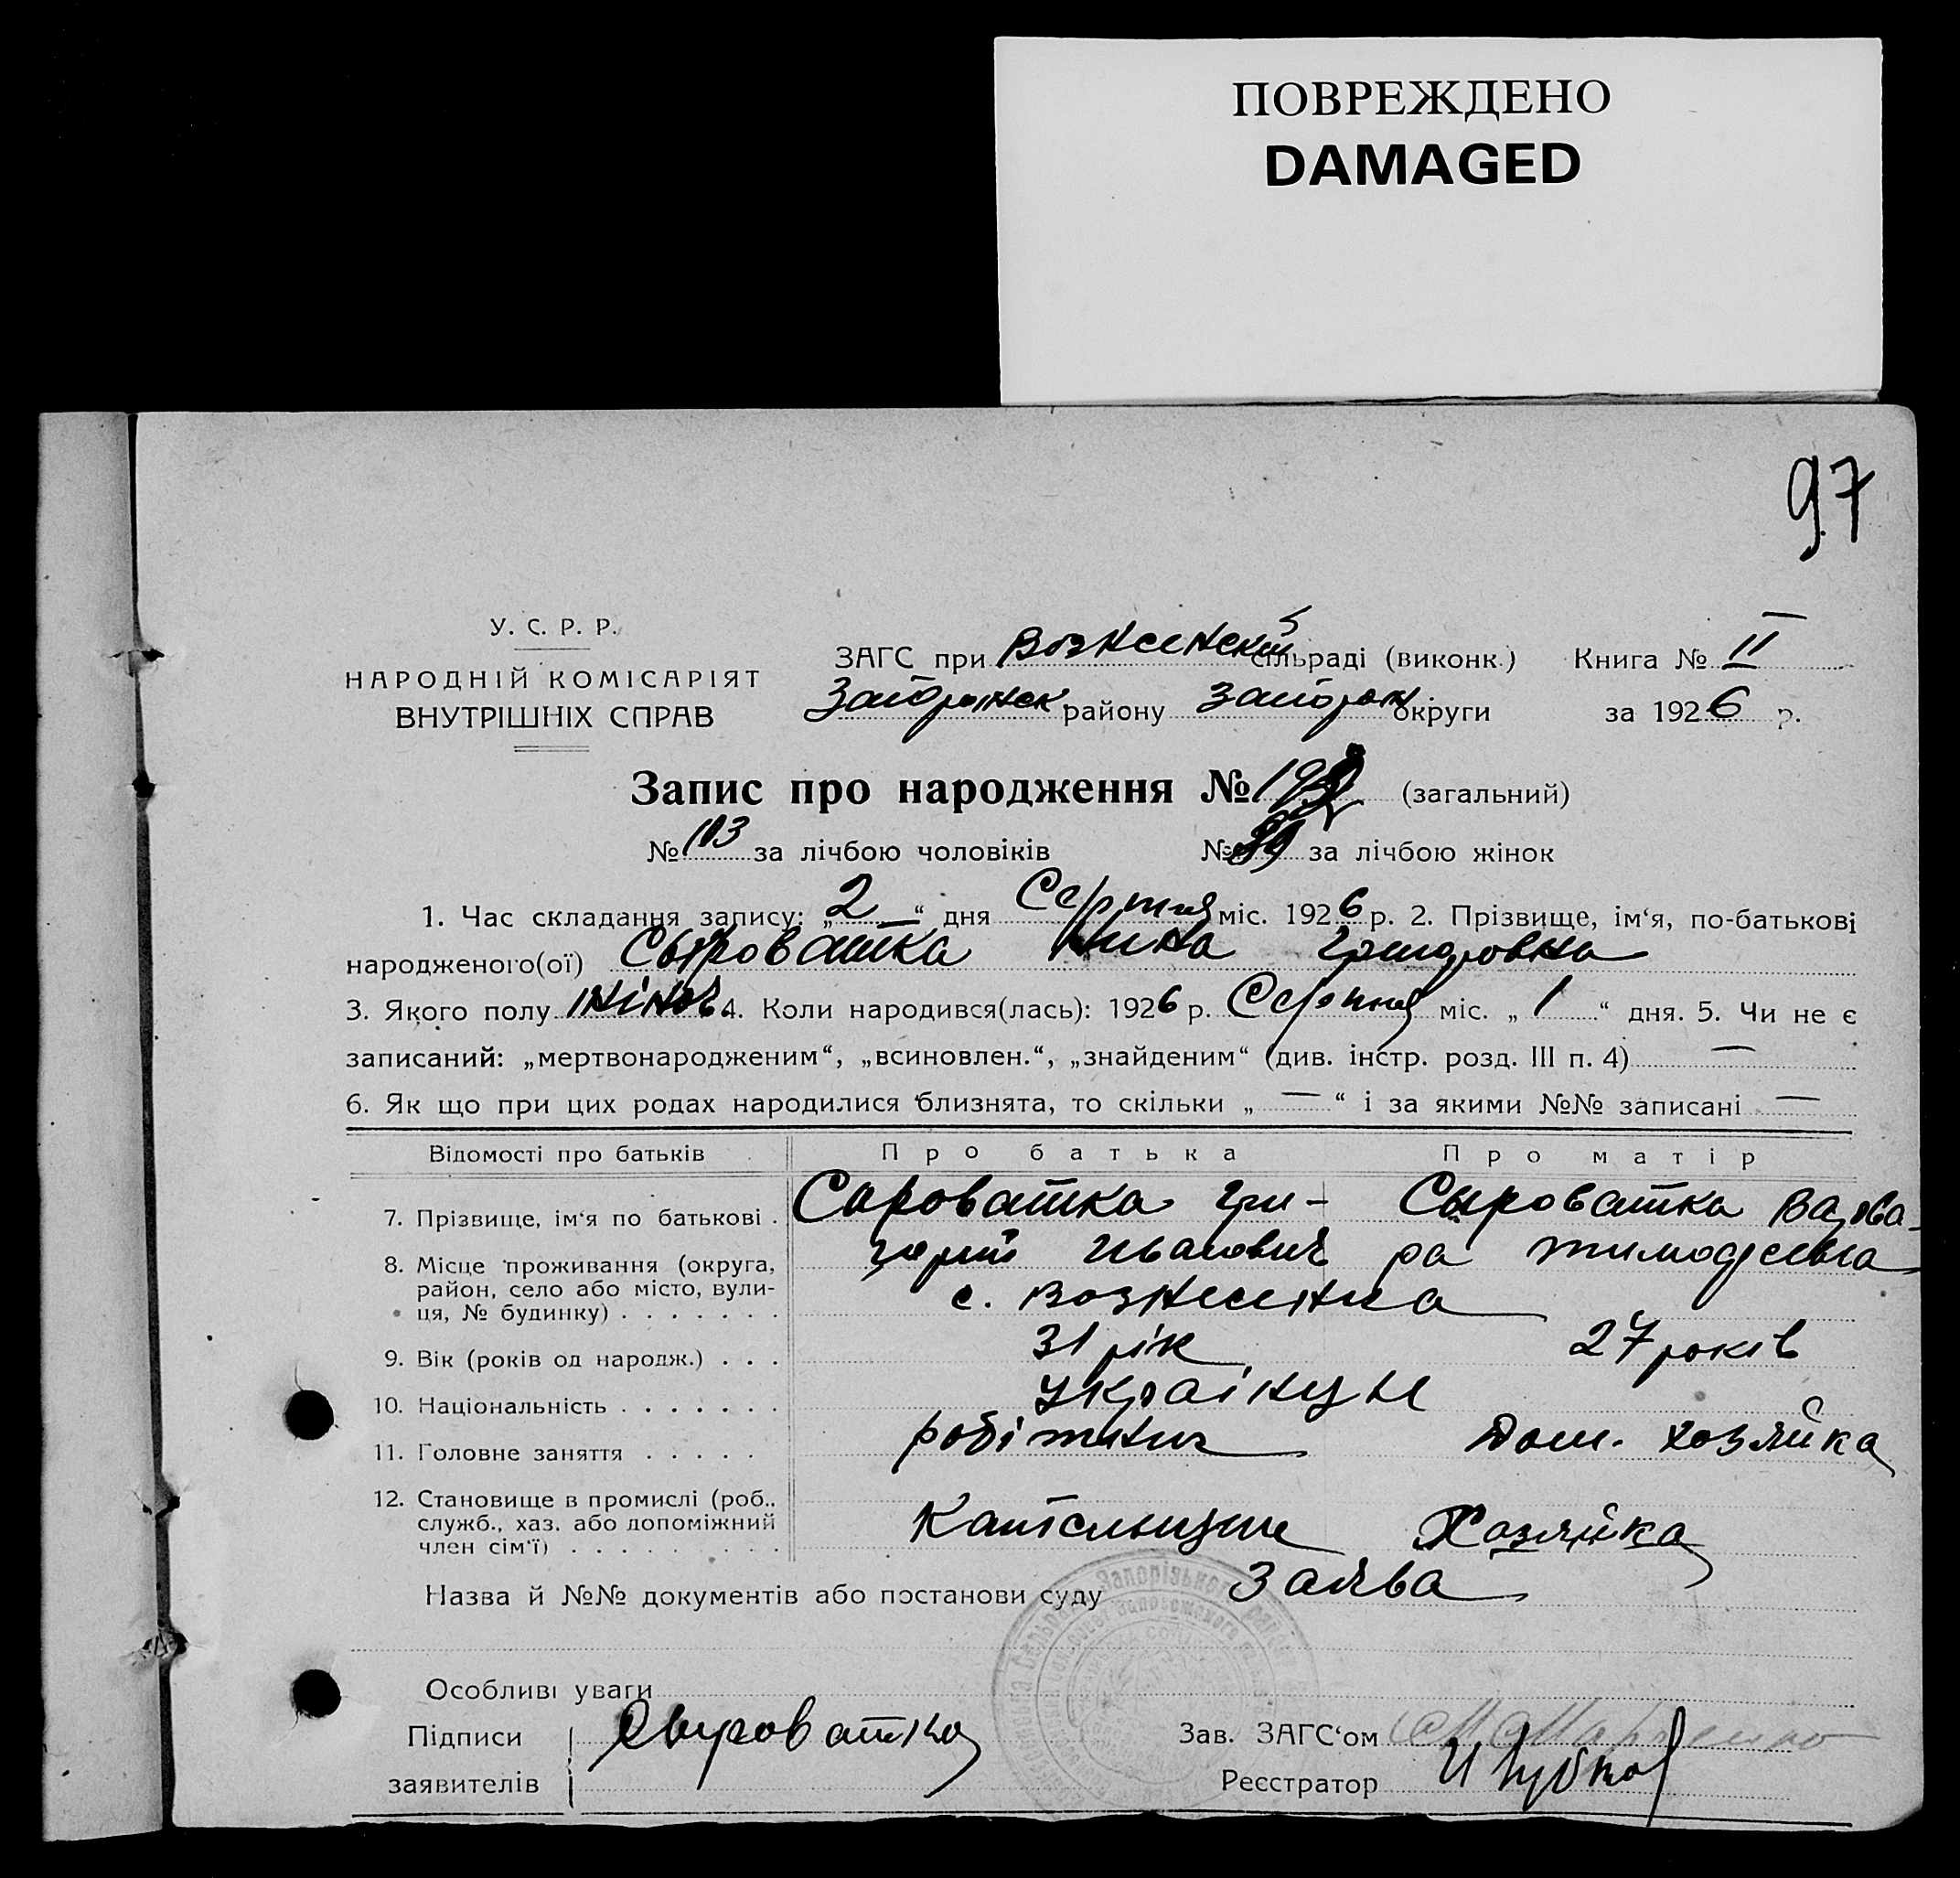 ПОВРЕЖДЕНО
DAMAGED
97
У. С. Р. Р.
НАРОДНІЙ КОМІСАРІЯТ
ВНУТРІШНІХ СПРАВ
ЗАГС при Вознесенскій сільраді (виконк.) Книга № II
району округи за 1926 р.
Запис про народження № (загальний)
№ 103 за лічбою чоловіків № 89 за лічбою жінок
1. Час складання запису: „2“ дня Серпня міс. 1926 р. 2. Прізвище, ім‘я, по-батькові
народженого(ої) Сыроватка Нина
3. Якого полу жіноч 4. Коли народився(лась): 1926 р. Серпня міс. „ 1 “ дня. 5. Чи не є
записаний: „мертвонародженим“, „всиновлен.“, „знайденим“ (див. інстр. розд. III п. 4) —
6. Як що при цих родах народилися близнята, то скільки „ — “ і за якими №№ записані —
Відомості про батьків Про батька Про матір
7. Прізвище, ім‘я по батькові . Сыроватка Гри- Сыроватка Варва-
горій Иванович ра Тимофеевна
8. Місце проживання (округа,
район, село або місто, вули-
ця, № будинку) . . . . . . . с. Вознесенка
9. Вік (років од народж.) . . . 31 рік 27 років
10. Національність . . . . . . . Українцы
11. Головне заняття . . . . . робітник Дом. хозяйка
12. Становище в промислі (роб.,
служб., хаз. або допоміжний
член сім‘ї) . . . . . . . . . Хозяйка
Назва й №№ документів або постанови суду Заява
Особливі уваги
Підписи Сыроватка Зав. ЗАГС‘ом
заявителів Реєстратор